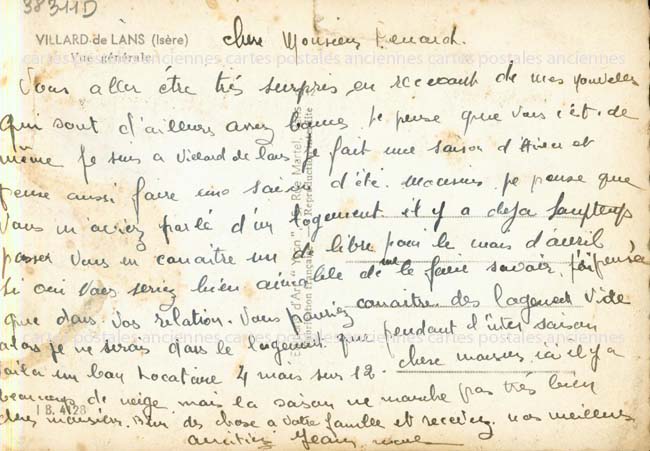 38311D
VILLARD-de-LANS (Isère)
Vue générale
cher Monsieur Renard.
cartes postales anciennes cartes postales anciennes cartes postales anciennes
Vous aller être très surpris en recevant de mes nouvelles
qui sont d'ailleurs assez bonnes je pense que vous c'est de
même je suis a Villard de lans je fait une saison d'Hiver et
pense aussi faire une saison d'été. Monsieur je pense que
Vous m'aviez parlé d'un logement il y a deja longtemps
pouvez vous en conaitre un de libre pour le mois d'avril
Si oui vous seriez bien aimable de me le faire savoir. j'ai pensé
que dans vos relation. Vous pouviez conaitre des logement vide
alors je ne serais dans le logement que pendant d'inter saison
voila un bon locataire 4 mois sur 12. cher monsieur ici il y a
beaucoup de neige mais la saison ne marche pas très bien
cher monsieur. Bien des chose a votre famille et recevez nos meilleures
amitiés Jean
I B. 4128
Editions d'Art "Yvon", 15, Rue Martel, Paris
Fabrication Française - Reproduction interdite